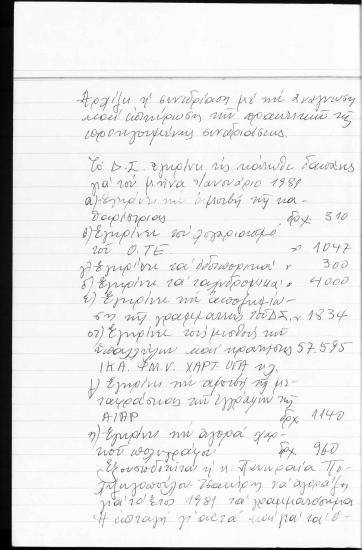 Αρχίζει η συνεδρίαση με την ανάγνωση
και επικύρωση των πρακτικών της
προηγουμένης συνεδριάσεως.
Το Δ.Σ. εγκρίνει τις κάτωθι δαπάνες
για τον μήνα Ιανουάριο 1981
α) Εγκρίνει την αμοιβή της κα-
θαρίστριας δρχ. 310
β) Εγκρίνει τον λογαριασμό
του Ο.ΤΕ " 1047
γ) Εγκρίνει τα οδοιπορικά " 300
δ) Εγκρίνει τα ταχυδρομικά " 4000
ε) Εγκρίνει την
της γραμματέως του Δ.Σ. " 1834
στ) Εγκρίνει τους μισθούς της
υπαλλήλου και κρατήσεις 57.595
ΙΚΑ. Φ.Μ.Υ. ΧΑΡΤ ΟΓΑ κλ.
ζ) Εγκρίνει την αμοιβή της με-
ταφράσεως των εγγράφων της
ΑΙΑΡ δρχ 1140
η) Εγκρίνει την αγορά χαρ-
τιού πολυγράφου δρχ 960
Εξουσιοδοτείται η κ.
να αγοράζει
για το έτος 1981 τα γραμματόσημα
Η επιταγή γι' αυτά και για τα